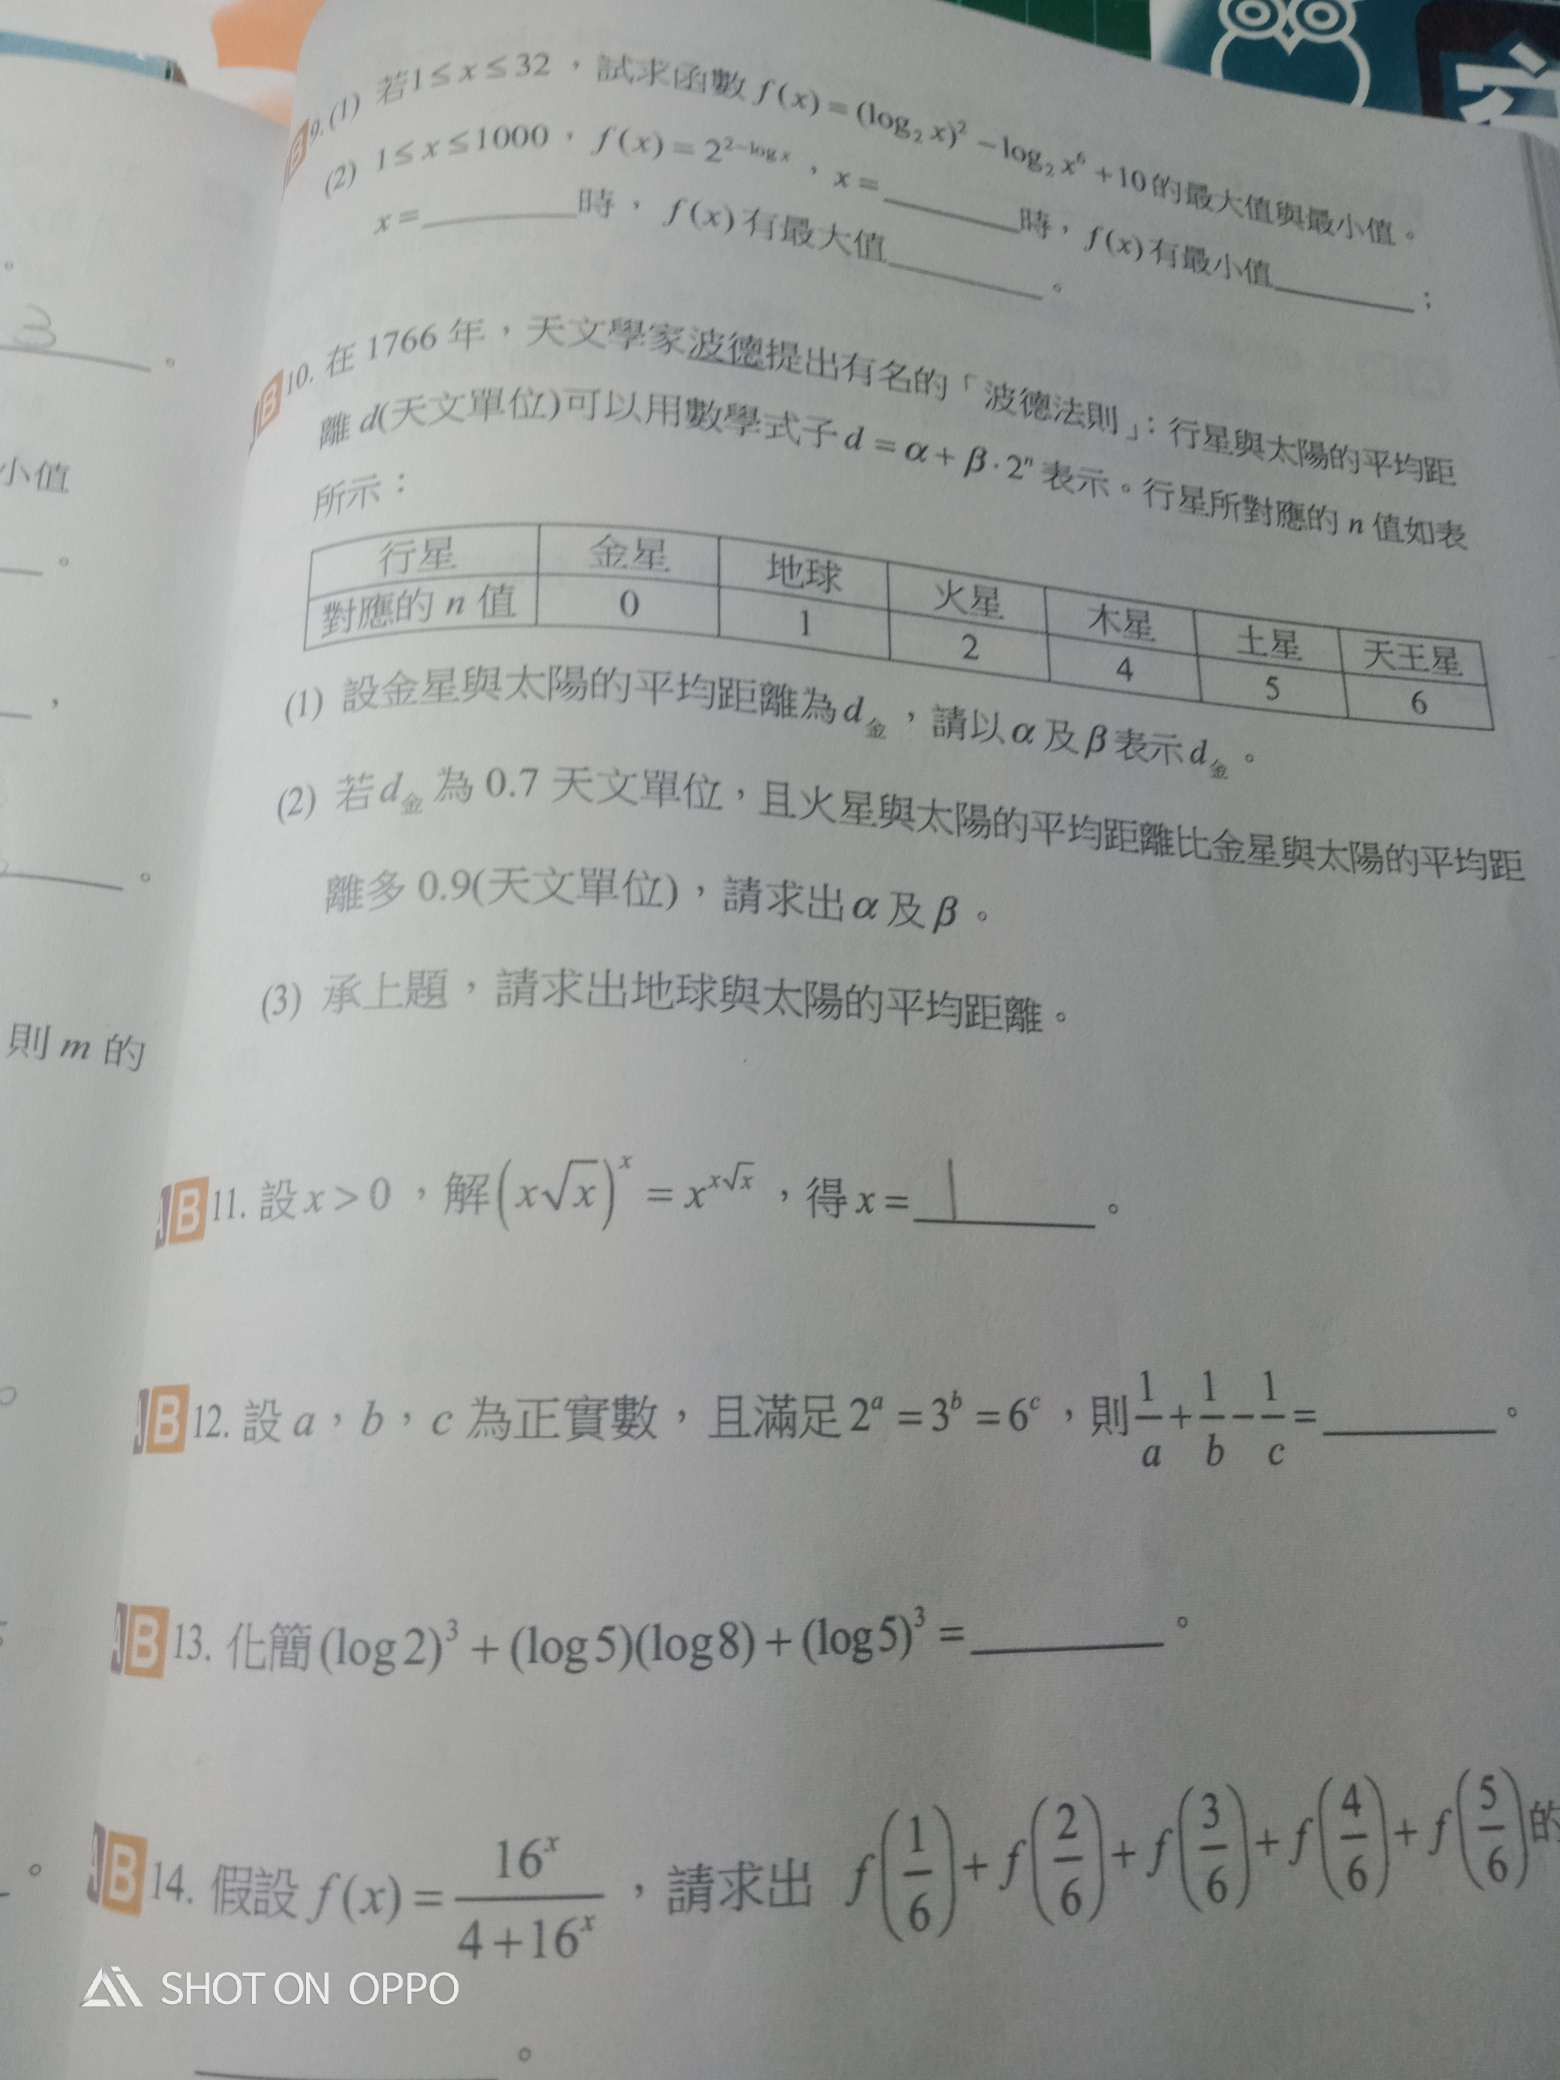 B 9. (1) 若1≤x≤32，試求函數 f(x)=(log₂x)²−log₂x⁶+10的最大值與最小值。
(2) 1≤x≤1000，f(x)=2^{2−log x}，x=________時，f(x)有最小值________；
x=________時，f(x)有最大值________。
B 10. 在 1766 年，天文學家波德提出有名的「波德法則」：行星與太陽的平均距
離 d(天文單位)可以用數學式子 d=α+β·2ⁿ 表示。行星所對應的 n 值如表
所示：
行星 金星 地球 火星 木星 土星 天王星
對應的 n 值 0 1 2 4 5 6
(1) 設金星與太陽的平均距離為d金，請以α及β表示d金。
(2) 若d金為 0.7 天文單位，且火星與太陽的平均距離比金星與太陽的平均距
離多 0.9(天文單位)，請求出α及β。
(3) 承上題，請求出地球與太陽的平均距離。
AB 11. 設x>0，解(x√x)^x=x^{x√x}，得x=1。
AB 12. 設 a，b，c 為正實數，且滿足2^a=3^b=6^c，則1/a+1/b−1/c=________。
AB 13. 化簡(log2)³+(log5)(log8)+(log5)³=________。
AB 14. 假設 f(x)=16^x/(4+16^x)，請求出 f(1/6)+f(2/6)+f(3/6)+f(4/6)+f(5/6)的
________。
3。
小值
則 m 的
SHOT ON OPPO